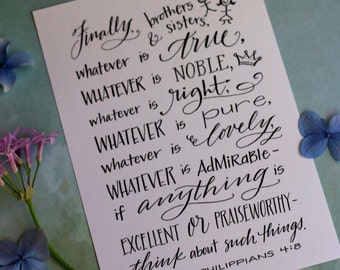 Finally, brothers
& sisters,
whatever is true,
WHATEVER is NOBLE,
whatever is right,
WHATEVER is pure,
whatever is lovely,
WHATEVER IS ADMIRABLE-
if anything is
EXCELLENT OR PRAISEWORTHY-
think about such things.
PHILIPPIANS 4:8